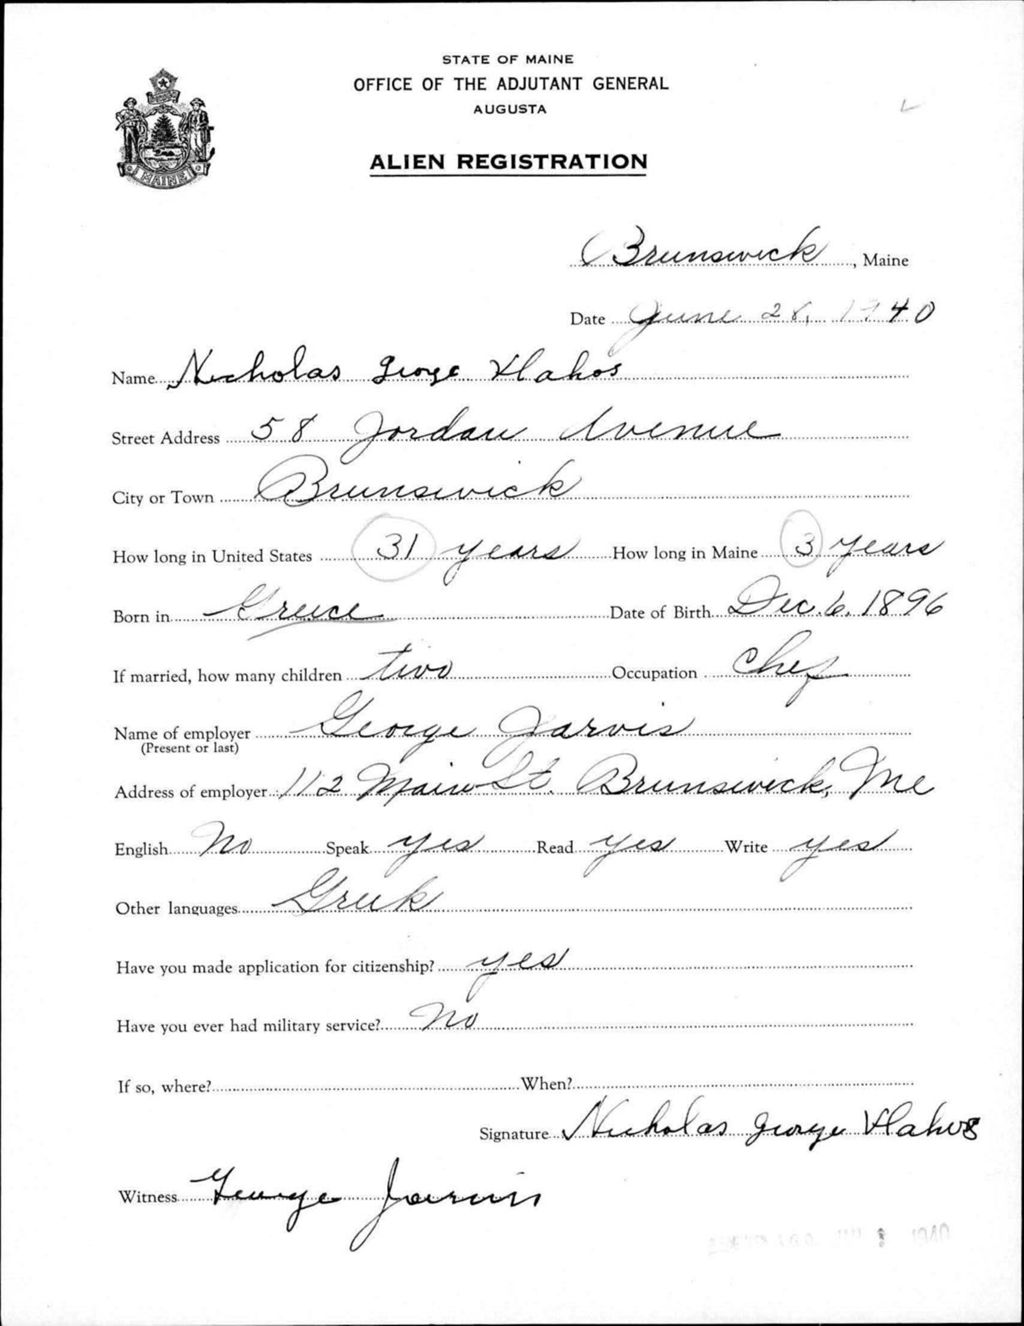 STATE OF MAINE
OFFICE OF THE ADJUTANT GENERAL
AUGUSTA
ALIEN REGISTRATION
MAINE
Brunswick, Maine
Date June 28, 1940
Name Nicholas George Vlahos
Street Address 58 Jordan Avenue
City or Town Brunswick
How long in United States 31 years How long in Maine 3 years
Born in Greece Date of Birth Dec. 6, 1896
If married, how many children two Occupation Chef
Name of employer George Jarvis
(Present or last)
Address of employer 112 Main St. Brunswick, Me
English No Speak yes Read yes Write yes
Other languages Greek
Have you made application for citizenship? yes
Have you ever had military service? No
If so, where? When?
Signature Nicholas George Vlahos
Witness George Jarvis
1940